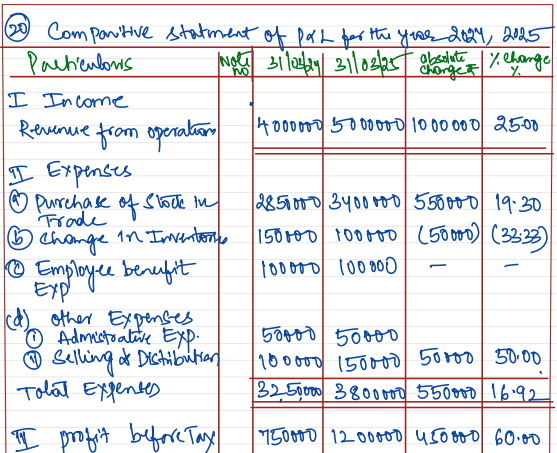 (20) Comparitive statment of P&L for the year 2024, 2025
Particulars Note no 31/03/24 31/03/25 absolute change ₹ % change %
I Income
Revenue from operation 4000000 5000000 1000000 25.00
II Expenses
(a) Purchase of Stock in Trade 2850000 3400000 550000 19.30
(b) Change in Inventories 150000 100000 (50000) (33.33)
(c) Employee benefit EXP 100000 100000 — —
(d) other Expenses
(i) Admistrative Exp. 50000 50000
(ii) Selling & Distibution 100000 150000 50000 50.00
Total Expenses 3250000 3800000 550000 16.92
III profit before Tax 750000 1200000 450000 60.00